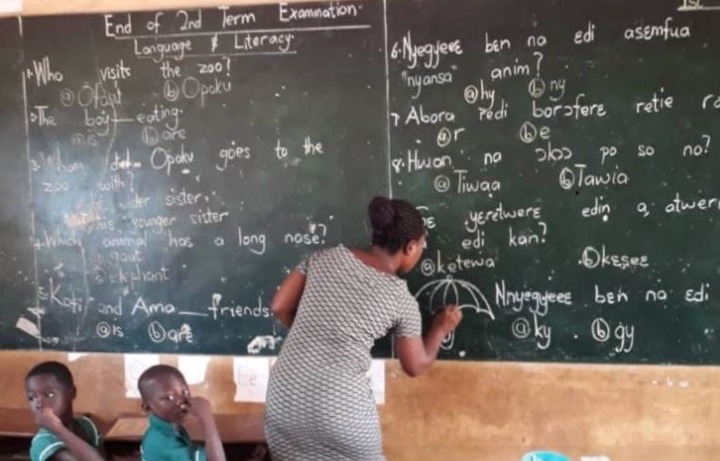 End of 2nd Term Examination.
Language & Literacy.
1. Who visits the zoo?
a Ofosu b Opoku
2. The boy ___ eating.
a is b are
3. Whom did Opoku goes to the
zoo with?
older sister.
b his younger sister
4. Which animal has a long nose?
a goat
b elephant
5. Kofi and Ama ___ friends
a is b are
6. Nyegyeeɛ bɛn na ɛdi asɛmfua
"nyansa" anim?
a hy b ny
7. Abora redi borɔfere retie
a r b e
8. Hwan na ɔkɔɔ po so no?
a Tiwaa b Tawia
yɛretwerɛ edin a, atwerɛ
edi kan?
a ketewa b kɛseɛ
Nnyegyeeɛ bɛn na ɛdi
a ky b gy